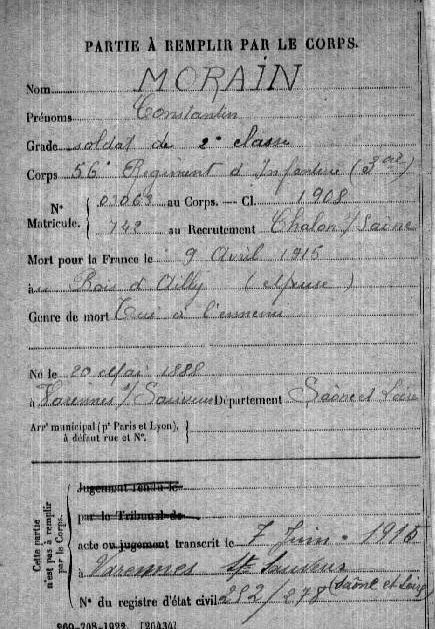 PARTIE À REMPLIR PAR LE CORPS.
Nom MORAIN
Prénoms Constantin
Grade soldat de 2e classe
Corps 56e Régiment d'Infanterie
N° Matricule. { 03063 au Corps. — Cl. 1908
742 au Recrutement Chalon s/ Saône
Mort pour la France le 9 Avril 1915
au Bois d'Ailly (Meuse)
Genre de mort Tué à l'ennemi
Né le 20 Mai 1888
à Varennes St Sauveur Département Saône et Loire
Arrt municipal (pr Paris et Lyon), à défaut rue et N°. {
Cette partie n'est pas à remplir par le Corps.
Jugement rendu le
par le Tribunal de
acte ou jugement transcrit le 7 Juin 1915
à Varennes St Sauveur
(Saône et Loire)
N° du registre d'état civil 292/278
260-708-1922. [20434]